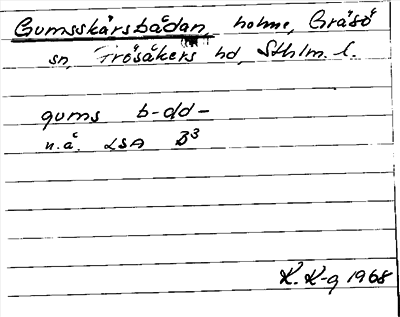 Gumsskärsbådan, holme, Gräsö
sn, Frösåkers hd, Sthlm. l.
gums b-dd-
n.å. LSA B3
K. K-g 1968